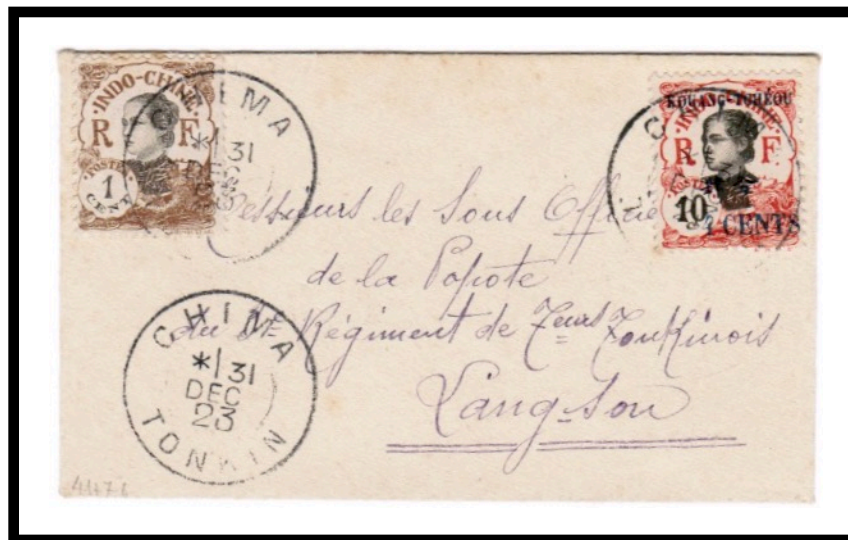 INDO-CHINE
R F
POSTES
1
CENT
CHIMA
*1 31
DEC
23
KOUANG-TCHÉOU
INDO-CHINE
R F
POSTES
10
4 CENTS
CHIMA
Messieurs les Sous Officie
de la Popote
du 3e Régiment de Teurs Tonkinois
Lang-Son
CHIMA
*1 31
DEC
23
TONKIN